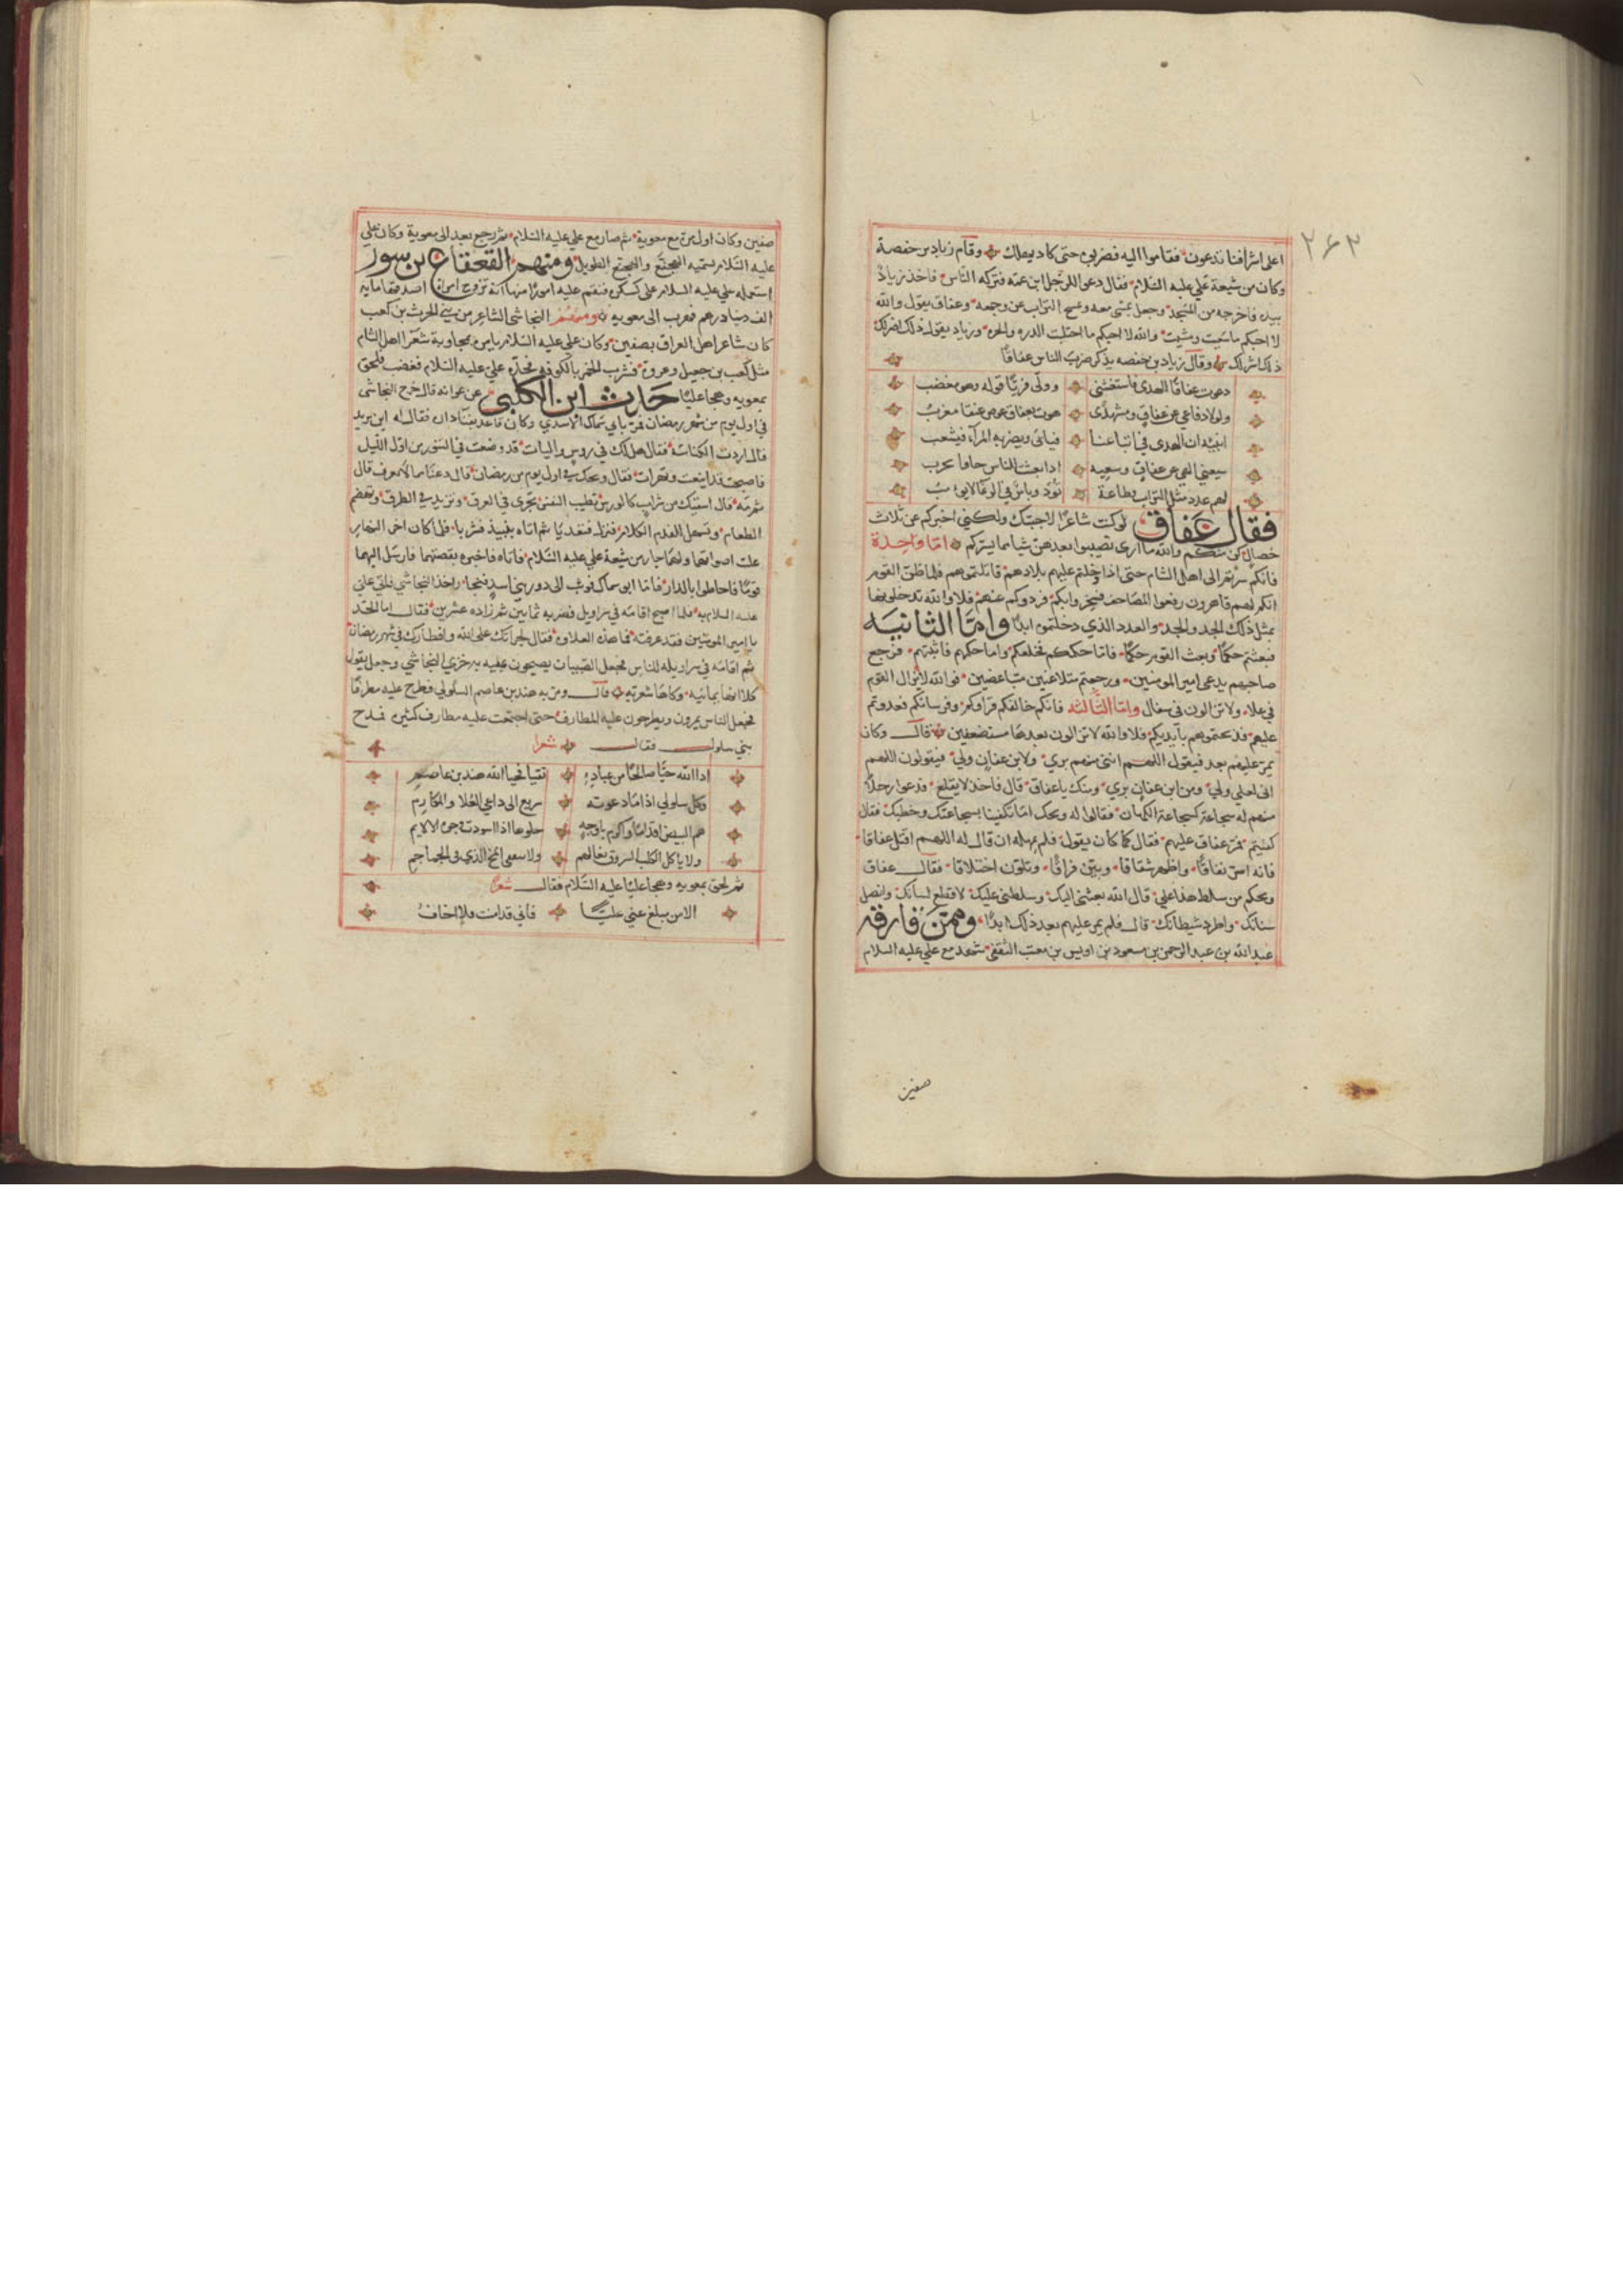 ٢٦٣
اعلى اشرافنا تدعون فقاموا اليه فضربوه حتى كاد يهلك وقام زياد بن حفصة
وكان من شيعة علي عليه السلام فقال دعوا الى الرجل ابن عمه فتركه الناس فاخذ زياد
بيده فاخرجه من المسجد وجعل يمشى معه ويمسح التراب عن وجهه وعفاق يقول والله
لا احبكم ما سعيت ومشيت والله لا احبكم ما اختلفت الدره والجره وزياد يقول ذلك اضرلك
ذلك اشرلك وقال زياد بن حفصه يذكر ضرب الناس عفاقا
دعوت عفاقا للهدى فاستغشنى وولى فريا قوله وهو مغضب
ولولا دفاعي عن عفاق ومشهدي هوت بعفاق عوض عنقا مغرب
انبيه ان الهدى في اتباعنا فيابى ويضربه المراء فيشعب
لهم عدد مثل التراب بطاعة
فقال عفاق لو كنت شاعرا لاجبتك ولكني اخبركم عن ثلاث
خصال كن منكم والله ما ارى تصيبوا بعدهن شيا مما يسركم اما واحدة
فانكم سرتم الى اهل الشام حتى اذا دخلتم عليهم بلادهم قاتلتموهم فلما ظن القوم
انكم لهم قاهرون رفعوا المصاحف فسخروا بكم فردوكم عنهم فلا والله تدخلونها
بمثل ذلك الجد والحد والعدد الذي دخلتموه ابدا واما الثانيه
فبعثتم حكما وبعث القوم حكما فاما حكمكم فخلعكم واما حكمهم فاثبتهم فرجع
صاحبهم يدعى امير المومنين ورجعتم متلاعنين متباغضين فوالله لا يزال القوم
في علاء ولا تزالون في سفال واما الثالثه فانكم خالفكم قراوكم وفرسانكم فعدوتم
عليهم فذبحتموهم بايديكم فلا والله لا تزالون بعدها مستضعفين قال وكان
يمر عليهم بعد فيقول اللهم انى منهم بري ولابن عفان ولي فيقولون اللهم
انى لعلي ولي ومن ابن عفان بري ومنك يا عفاق قال فاخذ لا يقلع فدعوا رجلا
منهم له سجاعة كسجاعة الكهان فقالوا له ويحك اما تكفينا بسجاعتك وخطبك فقال
كفيتم فمر عفاق عليهم فقال كما كان يقول فلم يمهله ان قال له اللهم اقتل عفاقا
فانه اسر نفاقا واظهر شقاقا وبين فراقا وتلون اختلاقا فقال عفاق
ويحكم من سلط هذا علي قال الله بعثنى اليك وسلطنى عليك لاقطع لسانك وانصل
سنانك واطرد شيطانك قال فلم يمر عليهم بعد ذلك ابدا وممن فارقه
عبد الله بن عبد الرحمن بن مسعود بن اويس بن معتب الثقفى شهد مع علي عليه السلام
صفين
صفين وكان اول مرة مع معوية ثم صار مع علي عليه السلام ثم رجع بعد الى معوية وكان علي
عليه السلام يسميه الهجنع والهجنع الطويل ومنهم القعقاع بن شور
استعمله علي عليه السلام على كسكر فنقم عليه امورا منها انه تزوج امراة اصدقها مايه
الف درهم فهرب الى معويه ومنهم النجاشى الشاعر من بني الحرث بن كعب
كان شاعر اهل العراق بصفين وكان علي عليه السلام يامره بمجاوبة شعرا اهل الشام
مثل كعب بن جعيل وغيره فشرب الخمر بالكوفه فحده علي عليه السلام فغضب فلحق
بمعويه وهجا عليا حدث ابن الكلبى عن عوانه قال خرج النجاشى
في اول يوم من شهر رمضان فمر بابي سماك الاسدي وكان قاعد بفنا داره فقال له اين تريد
قال اردت الكناسة فقال هل لك في روس واليات قد وضعت في التنور من اول الليل
فاصبحت قد اينعت وتهرات فقال ويحك في اول يوم من رمضان قال دعنا مما لا نعرف قال
ثم مه قال اسقيك من شراب كالورس تطيب النفس تجري في العرق وتزيد في الطرق وتهضم
الطعام وتسهل للفدم الكلام فنزل فتغديا ثم اتاه بنبيذ فشربا فلما كان اخر النهار
علت اصواتهما ولهما جار من شيعة علي عليه السلام فاتاه فاخبره بقصتهما فارسل اليهما
قوما فاحاطوا بالدار فاما ابو سماك فوثب الى دور بني اسد فنجا واخذ النجاشي فاتى علي
عليه السلام به فلما اصبح اقامه في سراويل فضربه ثمانين ثم زاده عشرين فقال اما الحد
يا امير المومنين فقد عرفته فما هذه العلاوه فقال لجراتك على الله وافطارك في شهر رمضان
ثم اقامه في سراويله للناس فجعل الصبيان يصيحون عليه به خزي النجاشي وجعل يقول
كلا انها يمانيه وكاها شعريه قال ومر به هند بن عاصم السلولي فطرح عليه مطرفا
فجعل الناس يمرون ويطرحون عليه المطارف حتى اجتمعت عليه مطارف كثيره فمدح
بني سلول فقال شعرا
اذا الله حيا صالحا من عباده تقيا فحيا الله هند بن عاصم
وكل سلولي اذا ما دعوته سريع الى داعي العلا والمكارم
هم البيض اقداما واكرم باوجه جلوها اذا اسودت وجوه الالايم
ولا ياكل الكلب السروق نعالهم ولا ينتقى المخ الذي في الجماجم
ثم لحق بمعويه وهجا عليا عليه السلام فقال شعرا
الا من مبلغ عني عليا فاني قد امنت فلا اخاف